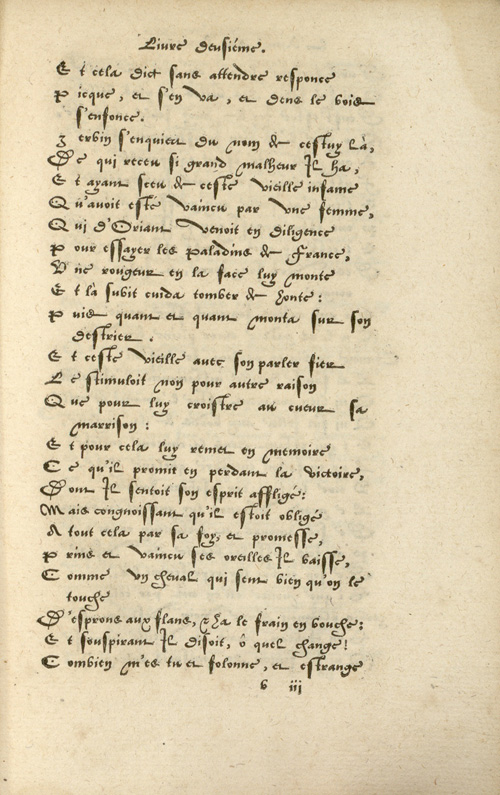 Livre deusiéme.
E t cela dict sans attendre responce
P icque, et s'en va, et dens le bois
s'enfonce.
Z erbin s'enquiert du nom de cestuy là,
D e qui receu si grand malheur Il ha,
E t ayant sceu de ceste vieille infame
Q u'avoit esté vaincu par une femme,
Q ui d'Oriant venoit en diligence
P our essayer les paladins de France,
V ne rougeur en la face luy monte
E t la subit cuida tomber de honte:
P uis quant et quant monta sur son
destrier.
E t ceste vieille avec son parler fier
L e stimuloit non pour autre raison
Q ue pour luy croistre au cueur sa
marrison:
E t pour cela luy remet en memoire
C e qu'il promit en perdant la victoire,
D ont Il sentoit son esprit affligé:
M ais congnoissant qu'il estoit obligé
A tout cela par sa foy, et promesse,
P rins et vaincu ses oreilles Il baisse,
C omme un cheval qui sent bien qu'on le
touche
D'esprons aux flans, & ha le frain en bouche:
E t souspirant Il disoit, ô quel change!
C ombien m'es tu et felonne, et estrange
b iii